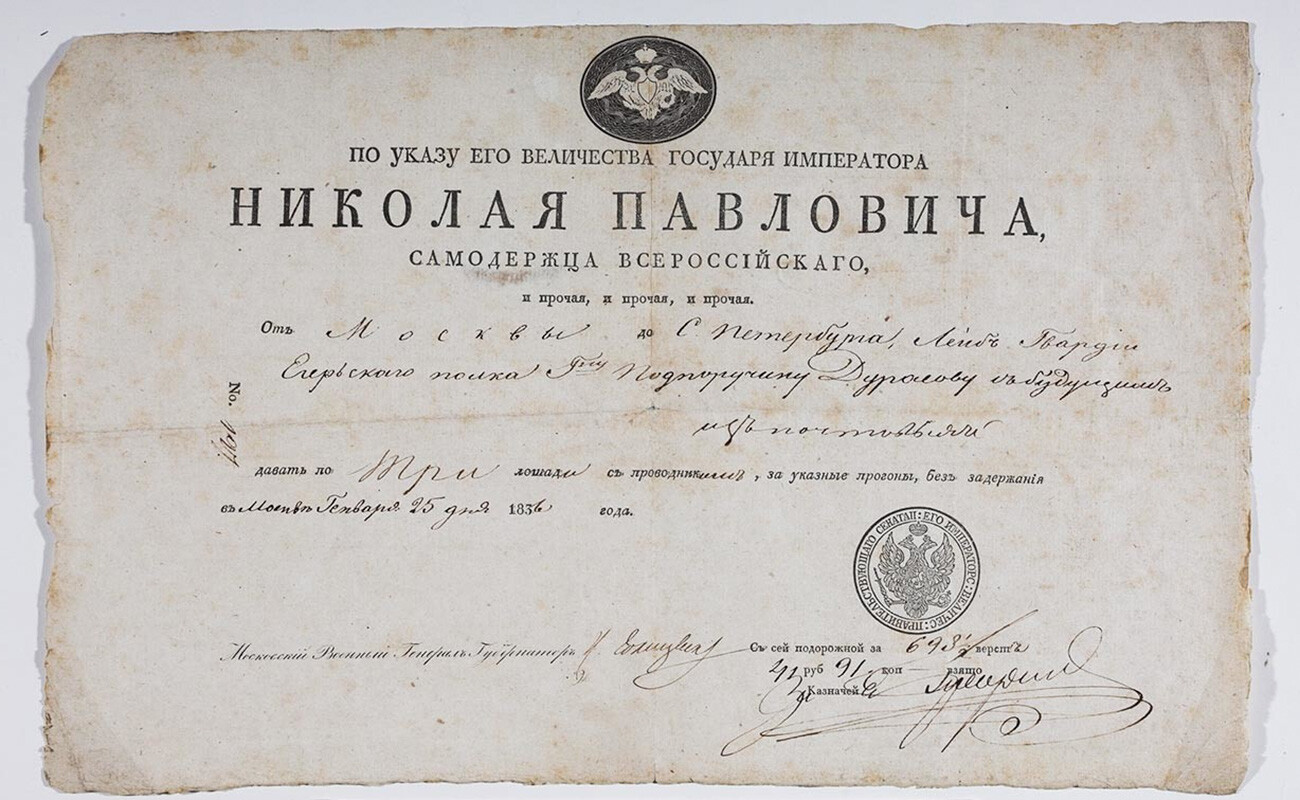 ПО УКАЗУ ЕГО ВЕЛИЧЕСТВА ГОСУДАРЯ ИМПЕРАТОРА
НИКОЛАЯ ПАВЛОВИЧА,
САМОДЕРЖЦА ВСЕРОССІЙСКАГО,
и прочая, и прочая, и прочая.
Отъ Москвы до С. Петербурга, Лейбъ Гвардіи
Егерьскаго полка Гну Подпоручику Дурасову съ будущимъ
изъ почтовыхъ
No.
давать по три лошади съ проводникомъ, за указные прогоны, безъ задержанія
въ Москвѣ Генваря 25 дня 1836 года.
ПРАВИТЕЛЬСТВУЮЩАГО СЕНАТАП: ЕГО ИМПЕРАТОРС: ВЕЛИЧЕС:
Московскій Военный Генералъ Губернаторъ К. Голицынъ
Съ сей подорожной за 698½ верстъ
41 руб 91 коп взято
Казначей